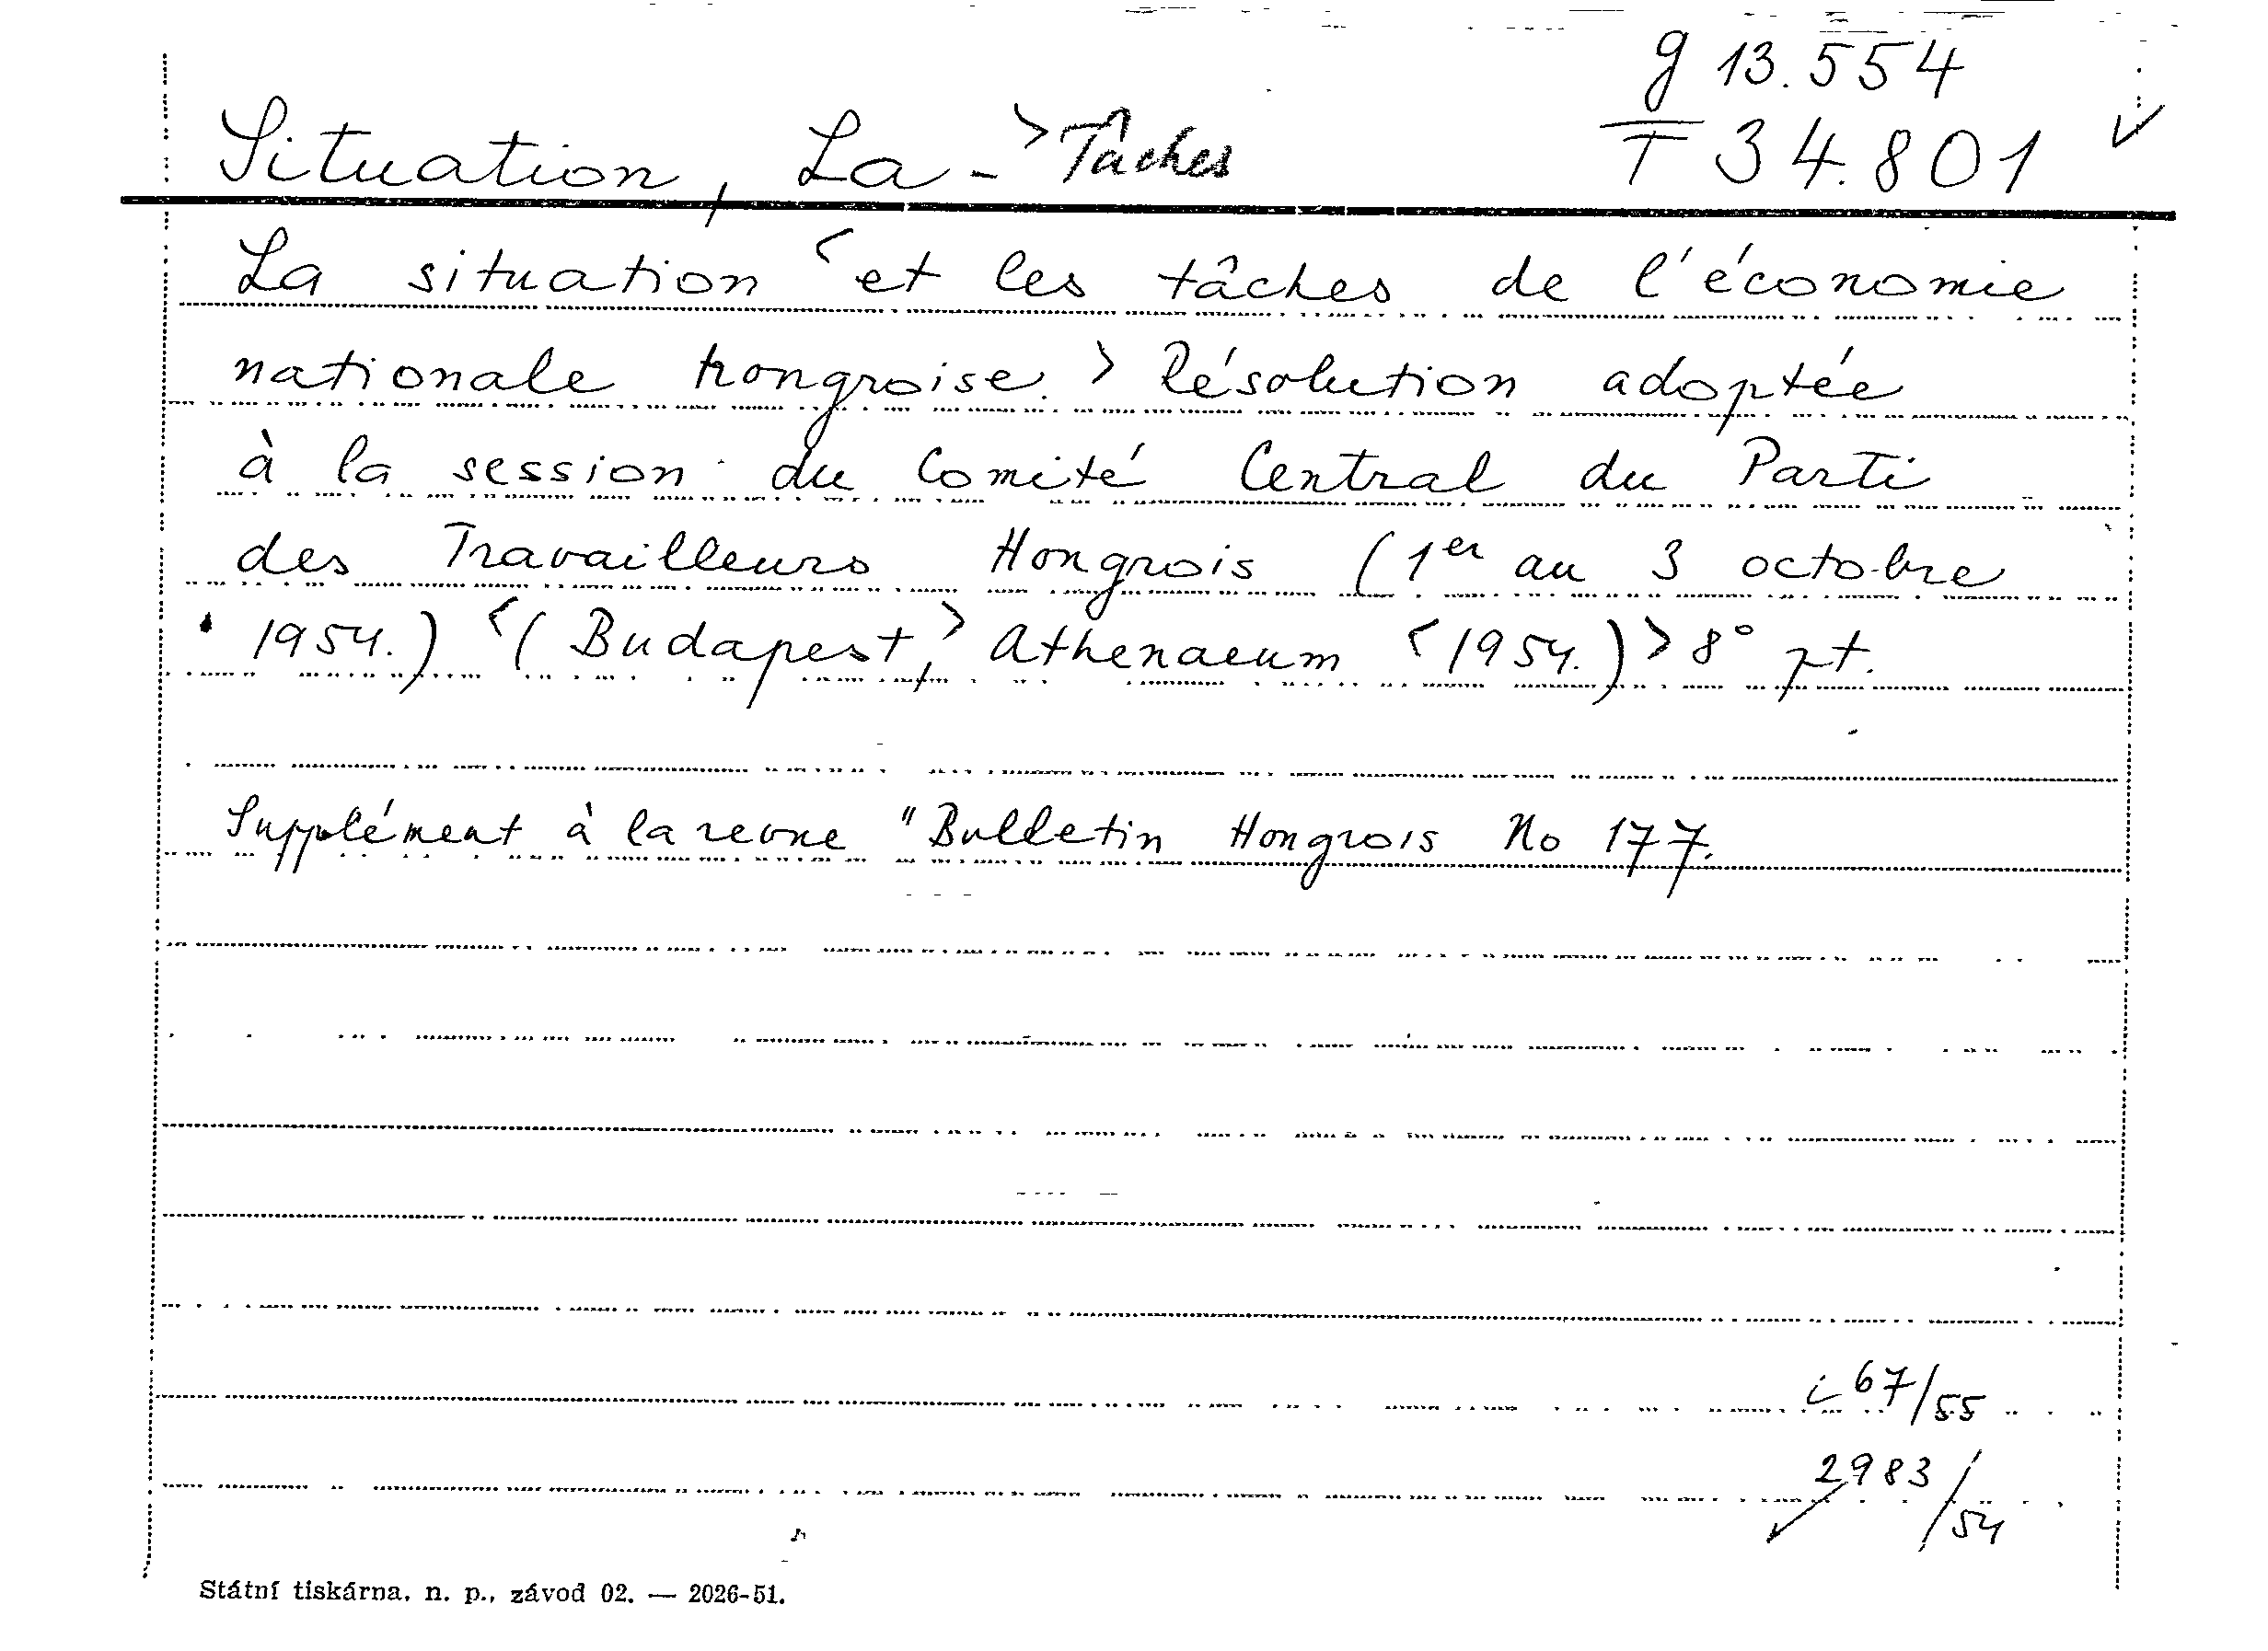 g 13.554
Situation, La - > Tâches T 34.801 ✓
La situation < et les tâches de l'économie
nationale hongroise. > Résolution adoptée
à la session du Comité Central du Parti
des Travailleurs Hongrois (1er au 3 octobre
1954.) < (Budapest, > Athenaeum < 1954.) > 8° pt.
Supplément à la revue "Bulletin Hongrois No 177.
c 67/55
2983/54
Státní tiskárna, n. p., závod 02. — 2026-51.